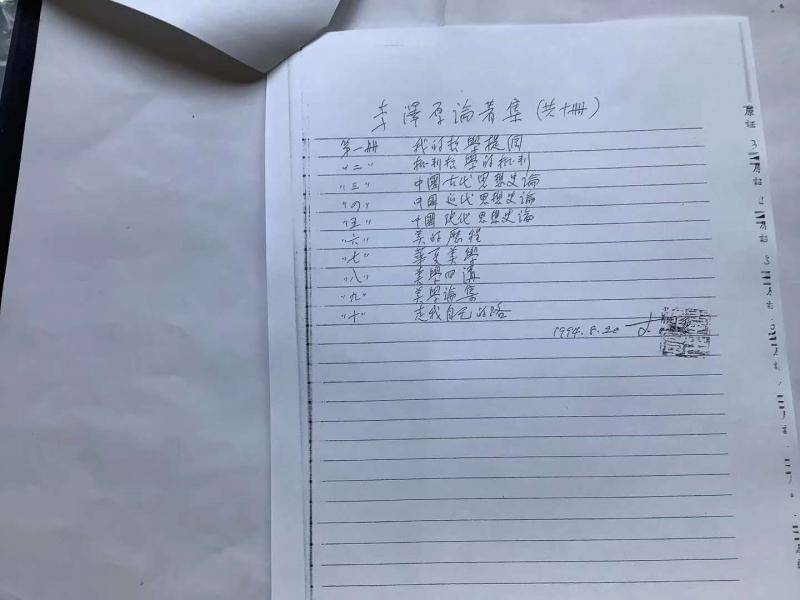 李澤厚論著集(共十册)
第一册 我的哲學提綱
"二" 批判哲學的批判
"三" 中國古代思想史論
"四" 中國近代思想史論
"五" 中國現代思想史論
"六" 美的歷程
"七" 華夏美學
"八" 美學四講
"九" 美學論集
"十" 走我自己的路
1994.8.20